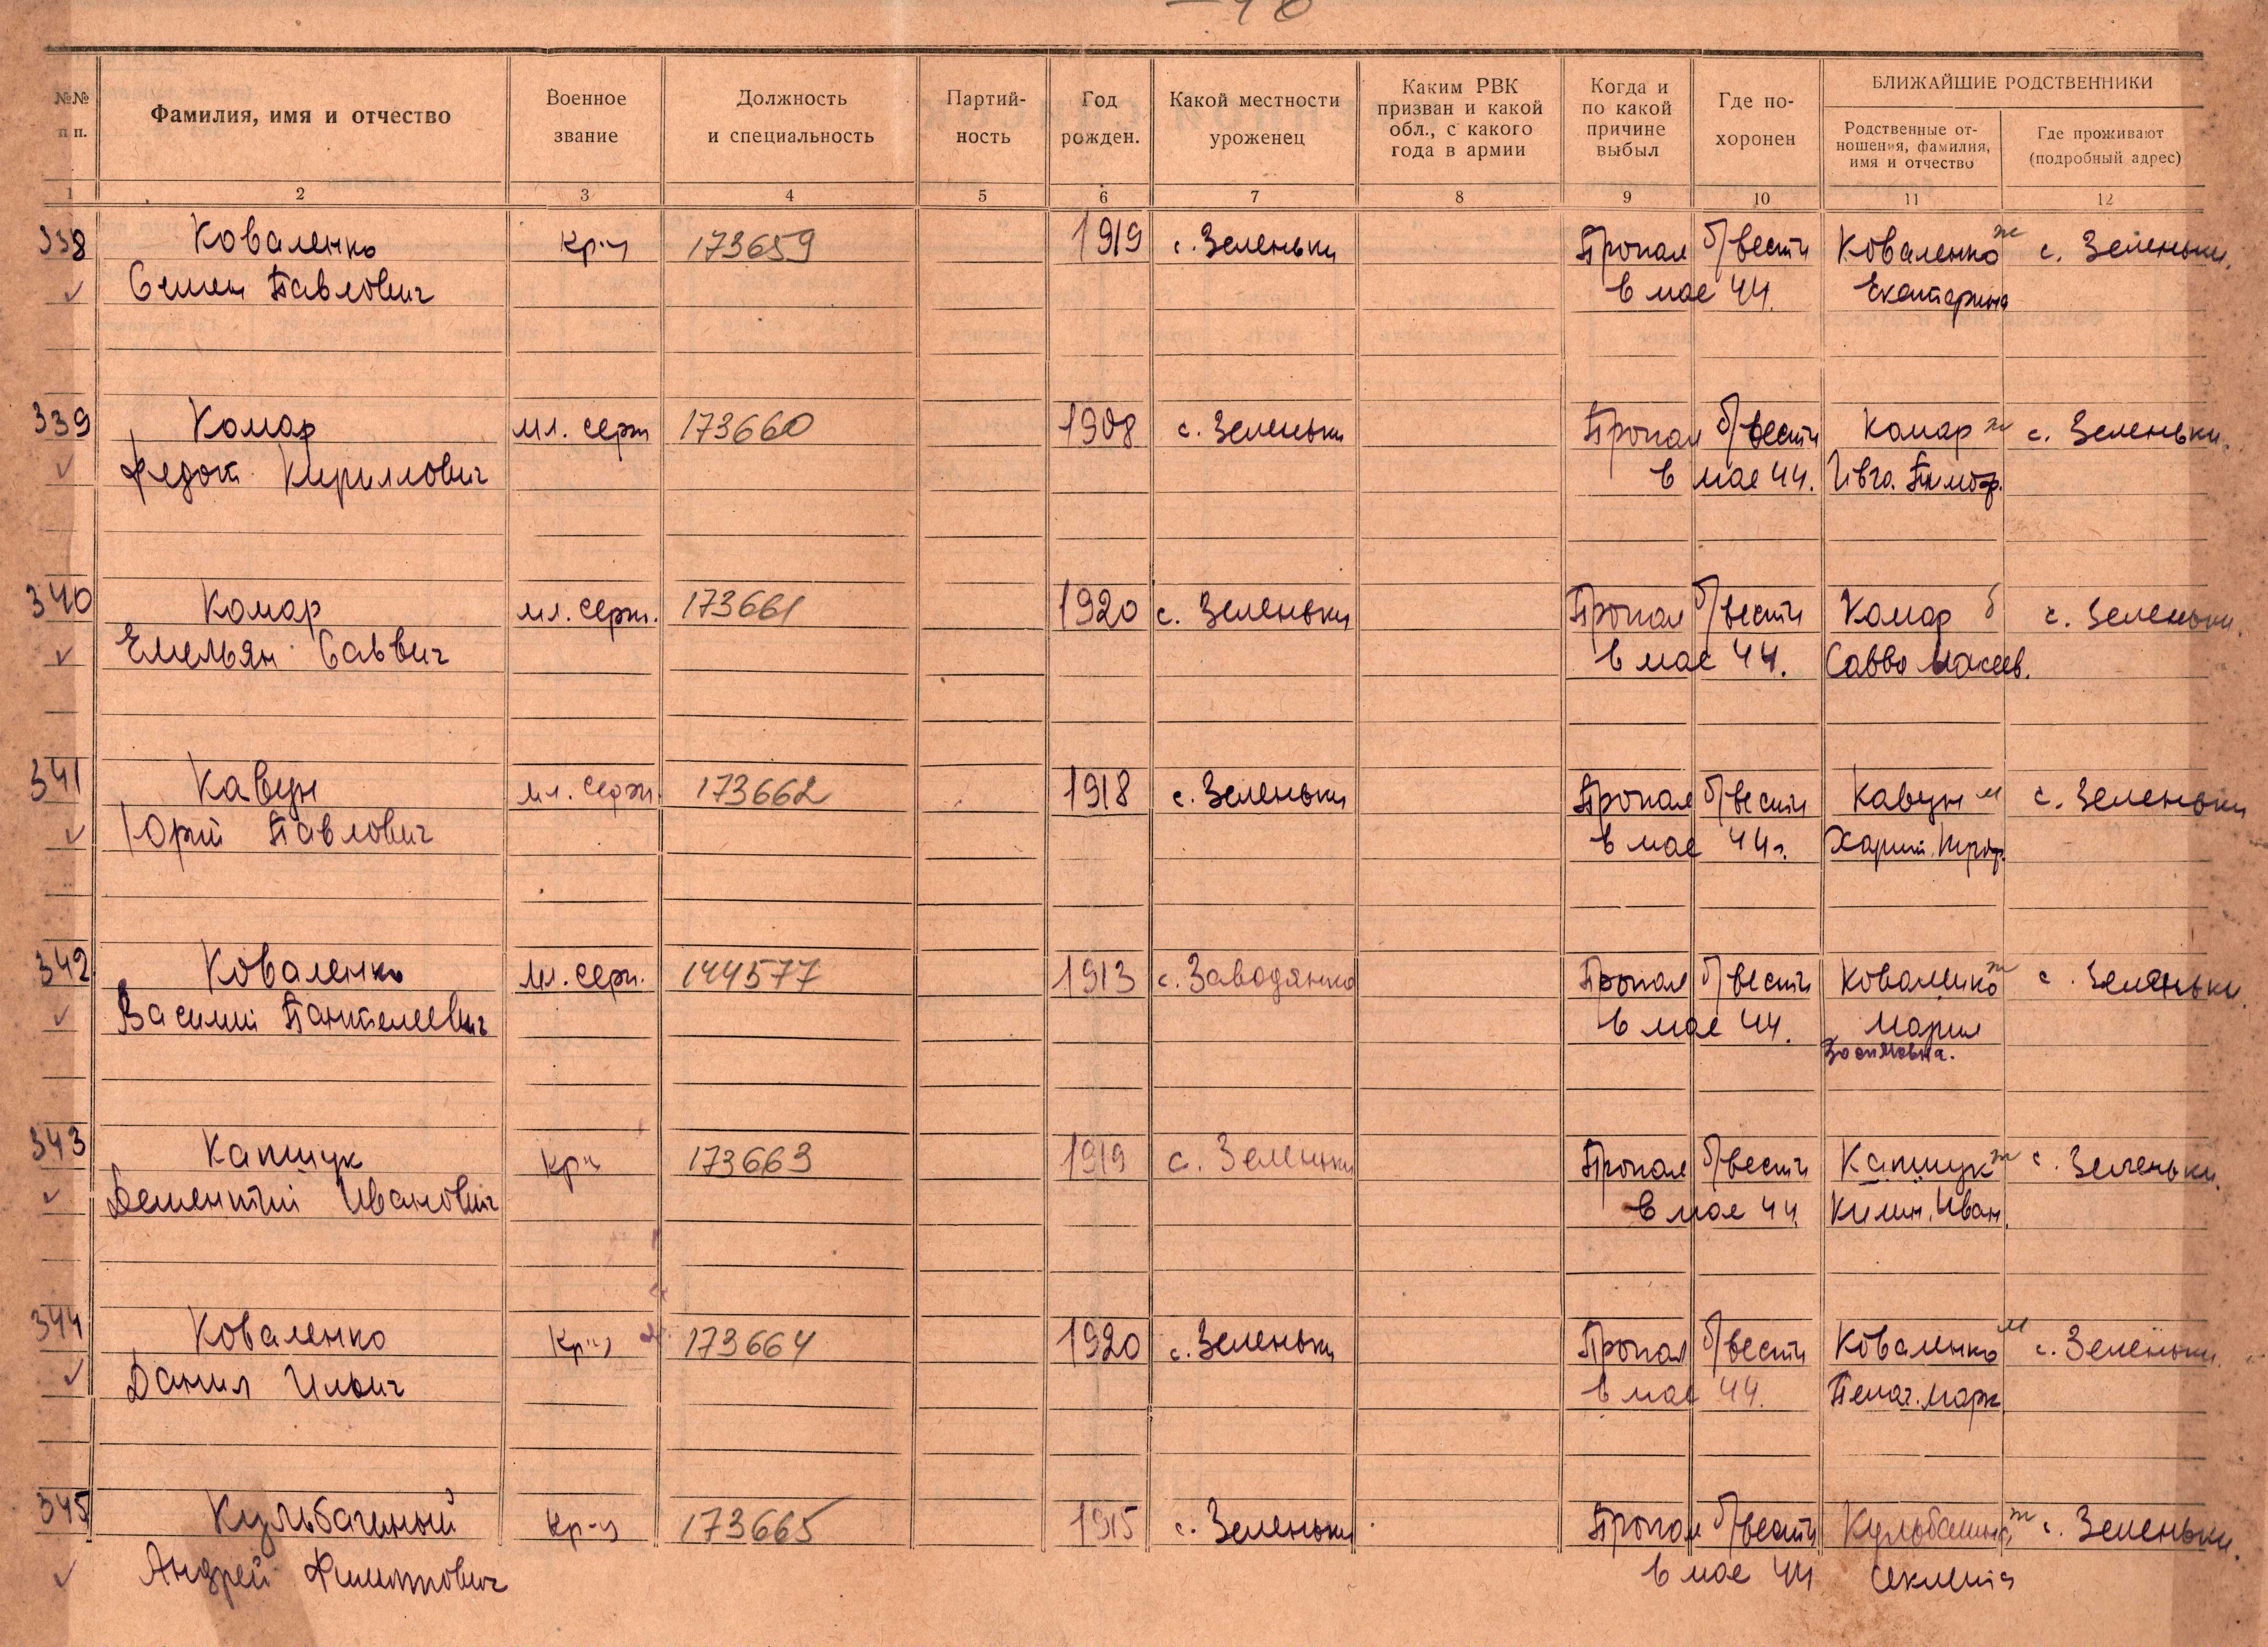 №№ п п.
Фамилия, имя и отчество
Военное звание
Должность и специальность
Партий- ность
Год рожден.
Какой местности уроженец
Каким РВК призван и какой обл., с какого года в армии
Когда и по какой причине выбыл
Где по- хоронен
БЛИЖАЙШИЕ РОДСТВЕННИКИ
Родственные от- ношения, фамилия, имя и отчество
Где проживают (подробный адрес)
1 2 3 4 5 6 7 8 9 10 11 12
338 Коваленко кр-ц 173659 1919 с. Зеленьки Пропал б/вести Коваленко ж с. Зеленьки.
Семен Павлович в мае 44. Екатерина
339 Комар мл. серж 173660 1908 с. Зеленьки Пропал б/вести Комар ж с. Зеленьки.
Федот Кириллович в мае 44. Ивга. Тимоф.
340 Комар мл. серж. 173661 1920 с. Зеленьки Пропал б/вести Комар с. Зеленьки.
Емельян Саввич в мае 44. Савва
341 Кавун мл. серж. 173662 1918 с. Зеленьки Пропал б/вести Кавун м с. Зеленьки
Юрий Павлович в мае 44г.
342 Коваленко мл. серж. 144577 1913 с. Заводянка Пропал б/вести Коваленко ж с. Зеленьки.
Василий Пантелеевич в мае 44. Мария
Зосимовна.
343 Капшук кр-ц 173663 1919 с. Зеленьки Пропал б/вести Капшук ж с. Зеленьки.
Дементий Иванович в мае 44 Килин. Иван.
344 Коваленко кр-ц 173664 1920 с. Зеленьки Пропал б/вести Коваленко м с. Зеленьки.
Данил Ильич в мае 44. Пелаг. Марк
345 Кульбачный кр-ц 173665 1915 с. Зеленьки Пропал б/вести ж с. Зеленьки.
Андрей Филиппович в мае 44